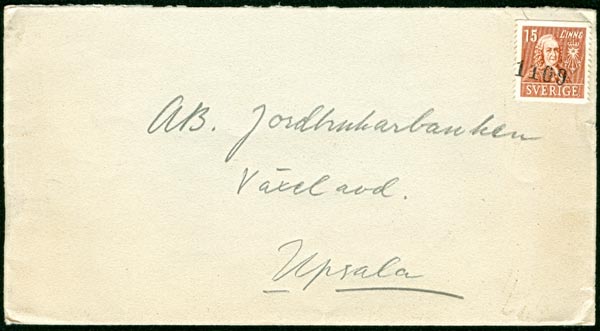 15 LINNÉ
1409
SVERIGE
AB. Jordbrukarbanken
Växelavd.
Upsala